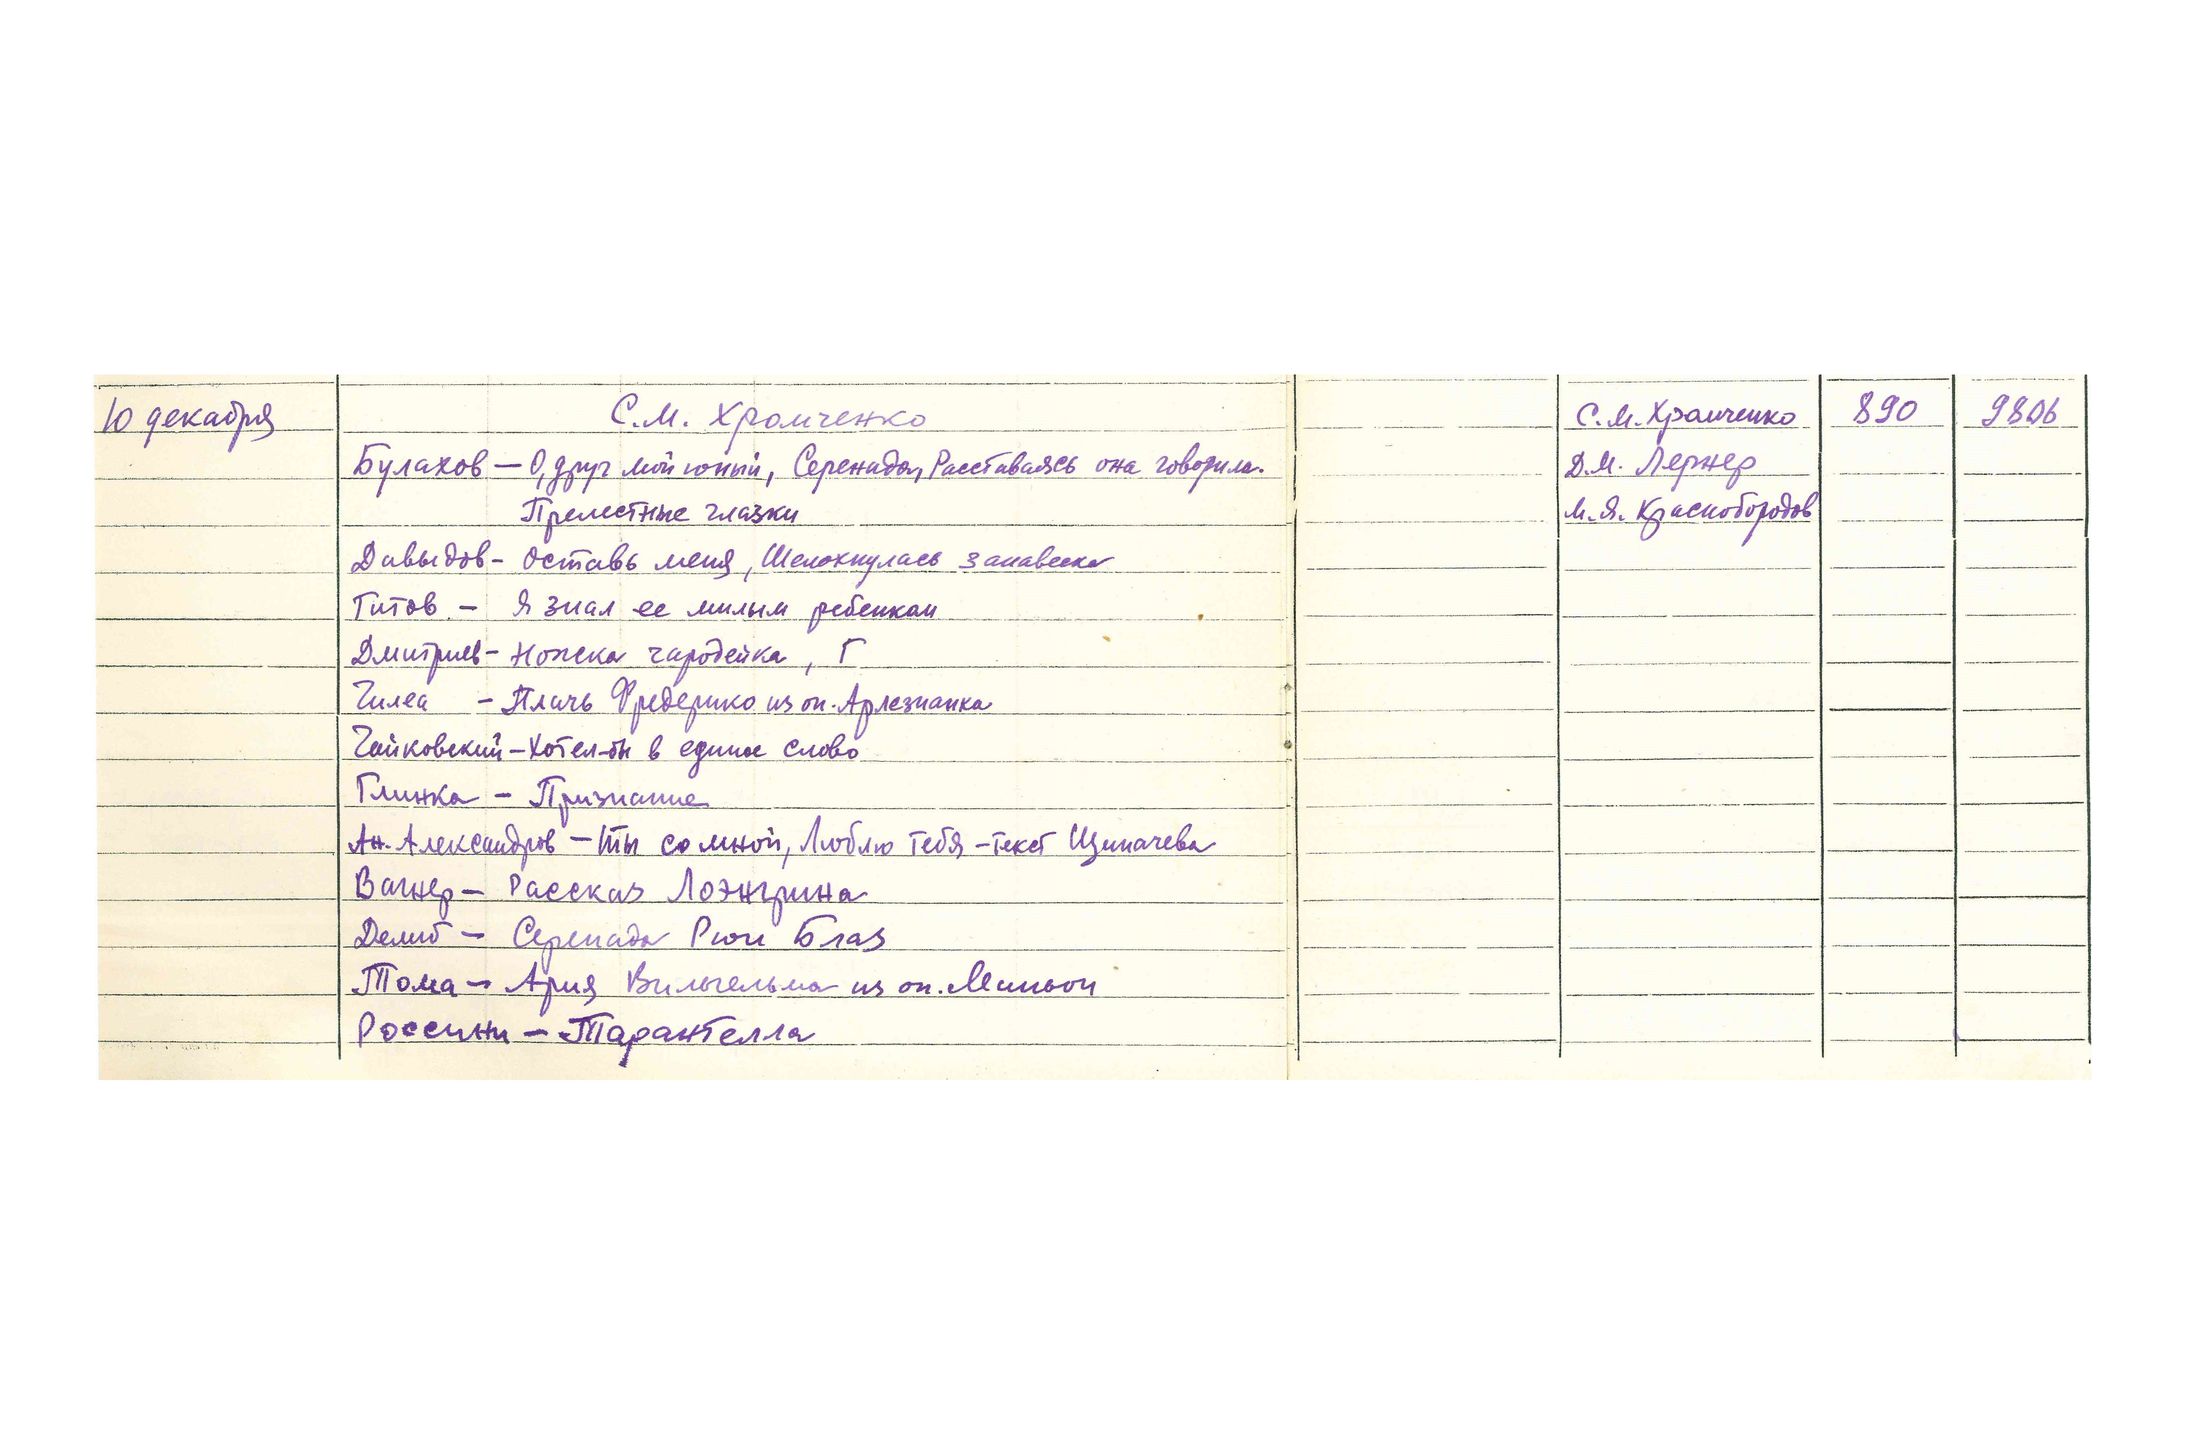 10 декабря С.М. Хромченко С.М. Хромченко 890 9806
Булахов – О, друг мой юный, Серенада, Расставаясь она говорила. Д.М. Лернер
Прелестные глазки М.Я. Краснобородов
Давыдов – Оставь меня, Шелохнулась занавеска
Титов – Я знал ее милым ребенком
Дмитриев – Ножка чародейка, Г
Чилеа – Плачь Фредерико из оп. Арлезианка
Чайковский – Хотел-бы в единое слово
Глинка – Признание
Ан. Александров – Ты со мной, Люблю тебя – текст Щипачева
Вагнер – Рассказ Лоэнгрина
Делиб – Серенада Рюи Блаз
Тома – Ария Вильгельма из оп. Миньон
Россини – Тарантелла